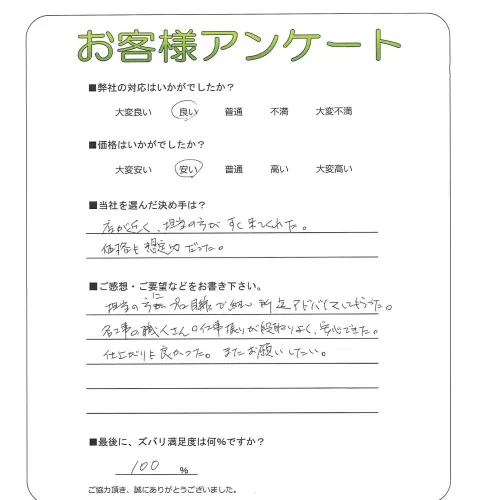 お客様アンケート
■弊社の対応はいかがでしたか？
大変良い 良い 普通 不満 大変不満
■価格はいかがでしたか？
大変安い 安い 普通 高い 大変高い
■当社を選んだ決め手は？
店が近く、担当の方がすぐ来てくれた。
価格も想定内だった。
■ご感想・ご要望などをお書き下さい。
担当の方にプロ目線で細い所迄アドバイスしてもらった。
各工事の職人さんの仕事振りが段取りよく、安心できた。
仕上がりも良かった。またお願いしたい。
■最後に、ズバリ満足度は何％ですか？
100 %
ご協力頂き、誠にありがとうございました。